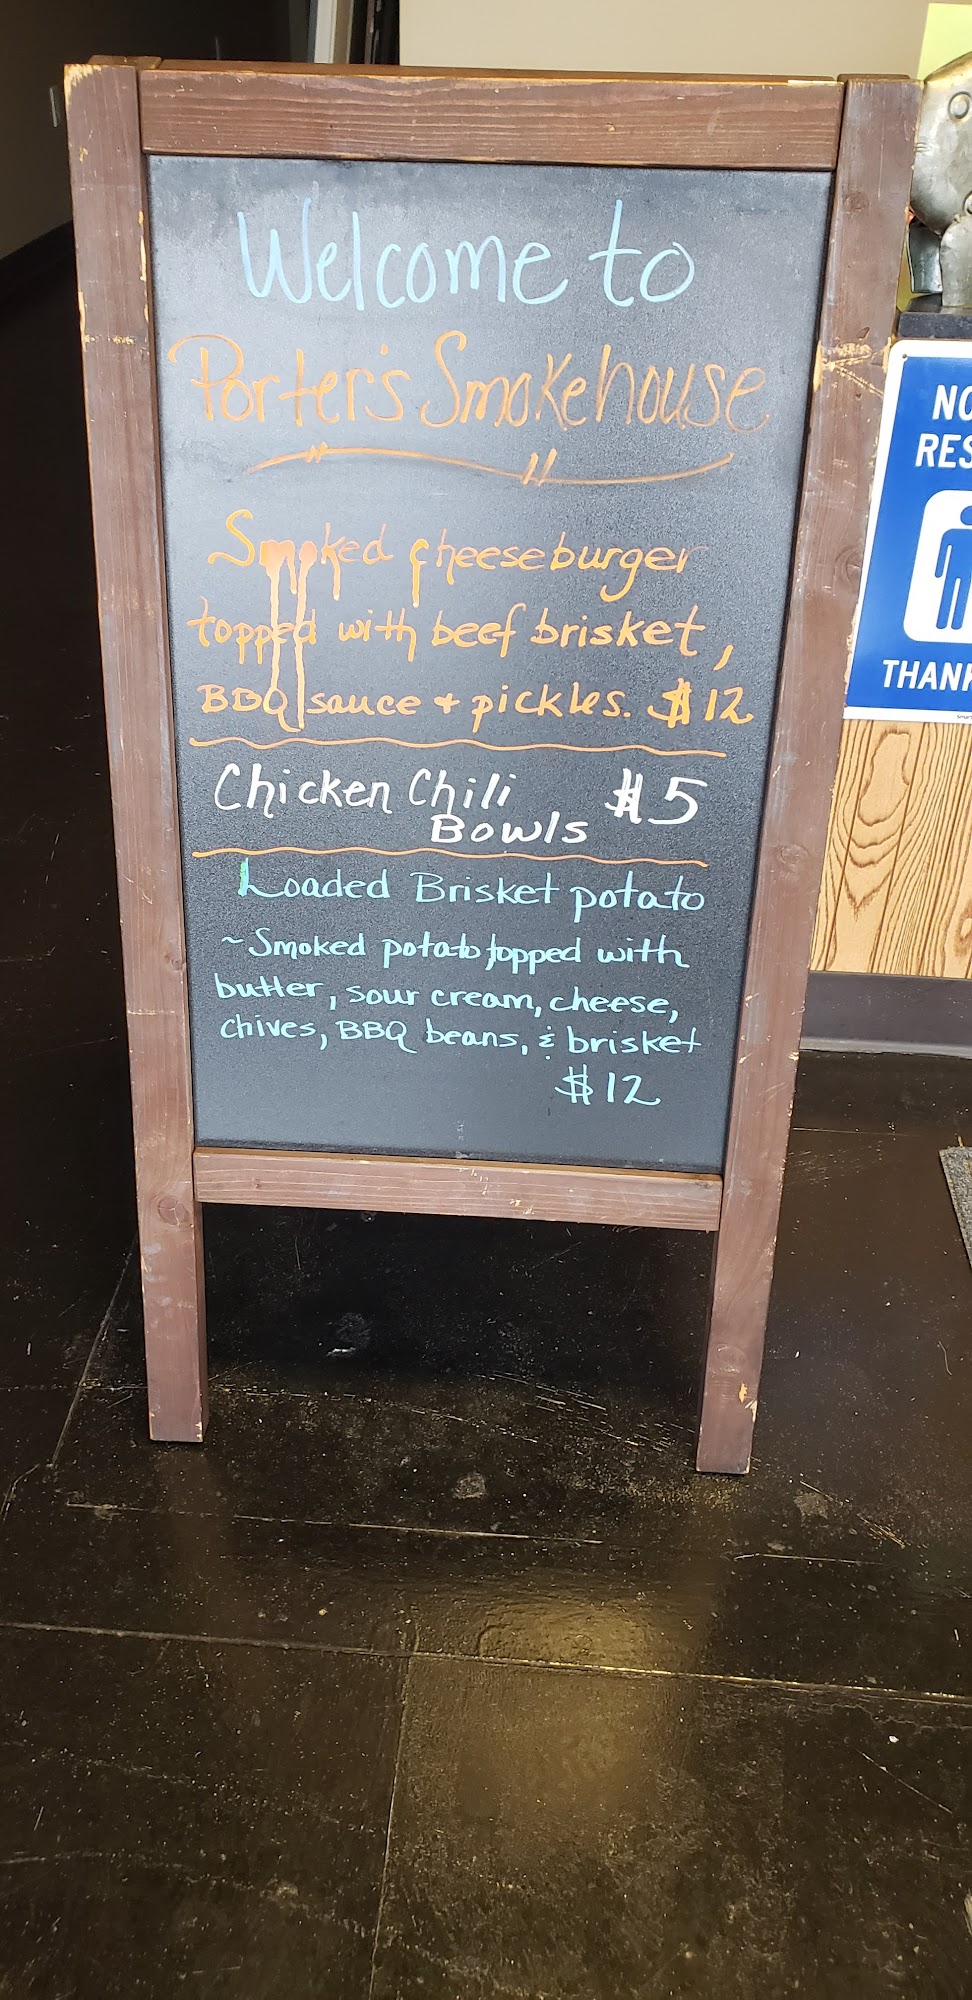 Welcome to
Porter's Smokehouse
Smoked cheeseburger
topped with beef brisket,
BBQ sauce + pickles. $12
Chicken Chili $5
Bowls
Loaded Brisket potato
~ Smoked potato topped with
butter, sour cream, cheese,
chives, BBQ beans, & brisket
$12
NO
RES
THANK